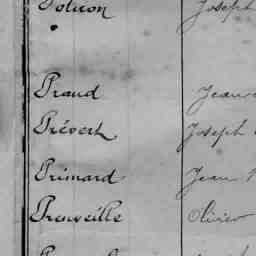 Potiron Joseph
Praud Jean
Prévert Joseph
Primard Jean
Preuveille Olivier